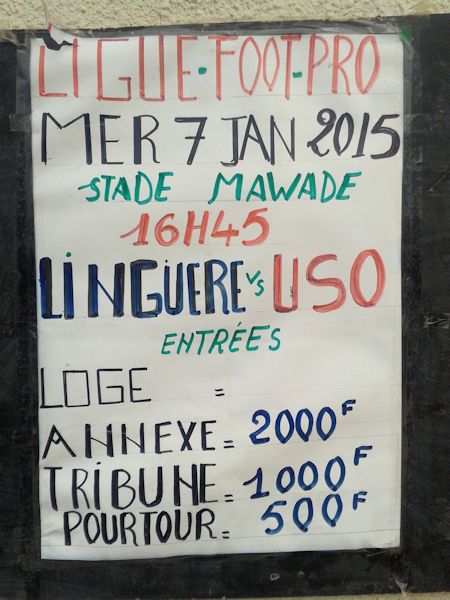 LIGUE-FOOT-PRO
MER 7 JAN 2015
STADE MAWADE
16H45
LINGUERE VS USO
ENTRÉES
LOGE =
ANNEXE = 2000F
TRIBUNE = 1000F
POURTOUR = 500F